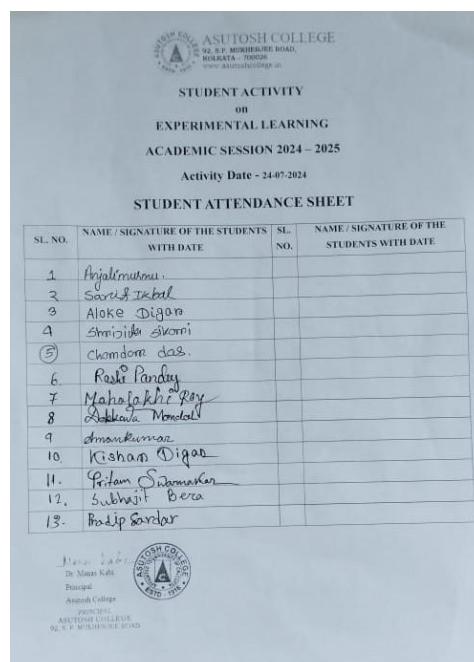 ASUTOSH COLLEGE
92, S.P. MUKHERJEE ROAD,
KOLKATA - 700026
www.asutoshcollege.in
STUDENT ACTIVITY
on
EXPERIMENTAL LEARNING
ACADEMIC SESSION 2024 – 2025
Activity Date - 24-07-2024
STUDENT ATTENDANCE SHEET
SL. NO. NAME / SIGNATURE OF THE STUDENTS WITH DATE SL. NO. NAME / SIGNATURE OF THE STUDENTS WITH DATE
1 Anjalimurmu.
2 Ikbal
3 Aloke Digar
4
5 das.
6. Pandey
7 Mahalakhi Roy
8 Mondal
9 Amankumar
10. Kishan Digar
11. Pritam Swarnakar
12. Subhajit Bera
13. Pradip Sardar
Dr. Manas Kabi
Principal
Asutosh College
PRINCIPAL
ASUTOSH COLLEGE
92, S. P. MUKHERJEE ROAD
ASUTOSH COLLEGE
ESTD - 1916